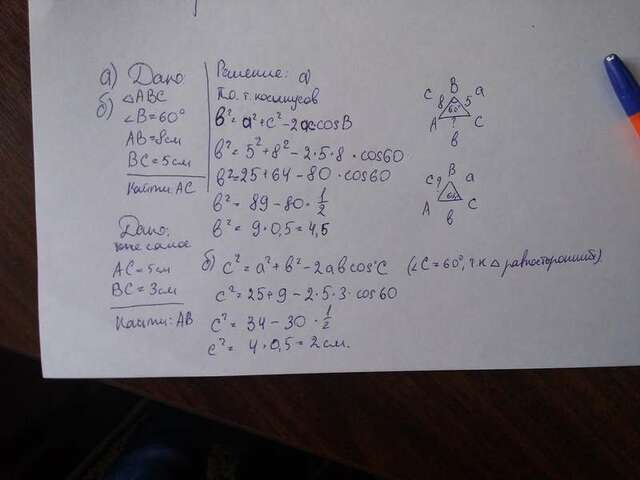 а) Дано
△ABC
б) ∠B=60°
AB=8см
BC=5см
Найти AC
Решение: а)
По т. косинусов
b²=a²+c²-2ac cosB
b²=5²+8²-2·5·8·cos60
b²=25+64-80·cos60
b²=89-80·1/2
b²=9·0,5=4,5
c B a
8 60° 5
A ? C
b
B
c ? a
60
A C
b
Дано:
тоже самое
AC=5см
BC=3см
Найти: AB
б) c²=a²+b²-2ab cos°C (∠C=60°, т к △ равносторонний)
c²=25+9-2·5·3·cos60
c²=34-30·1/2
c²=4·0,5=2см.